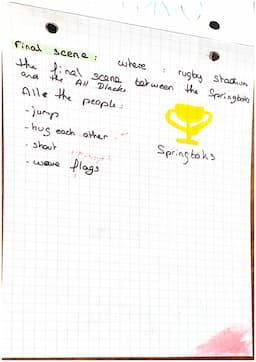 Final scene : where : rugby stadium
the final scene between the Springboks
and the All Blacks
Alle the people :
- jump
- hug each other
- shout
- wave flags
Springboks